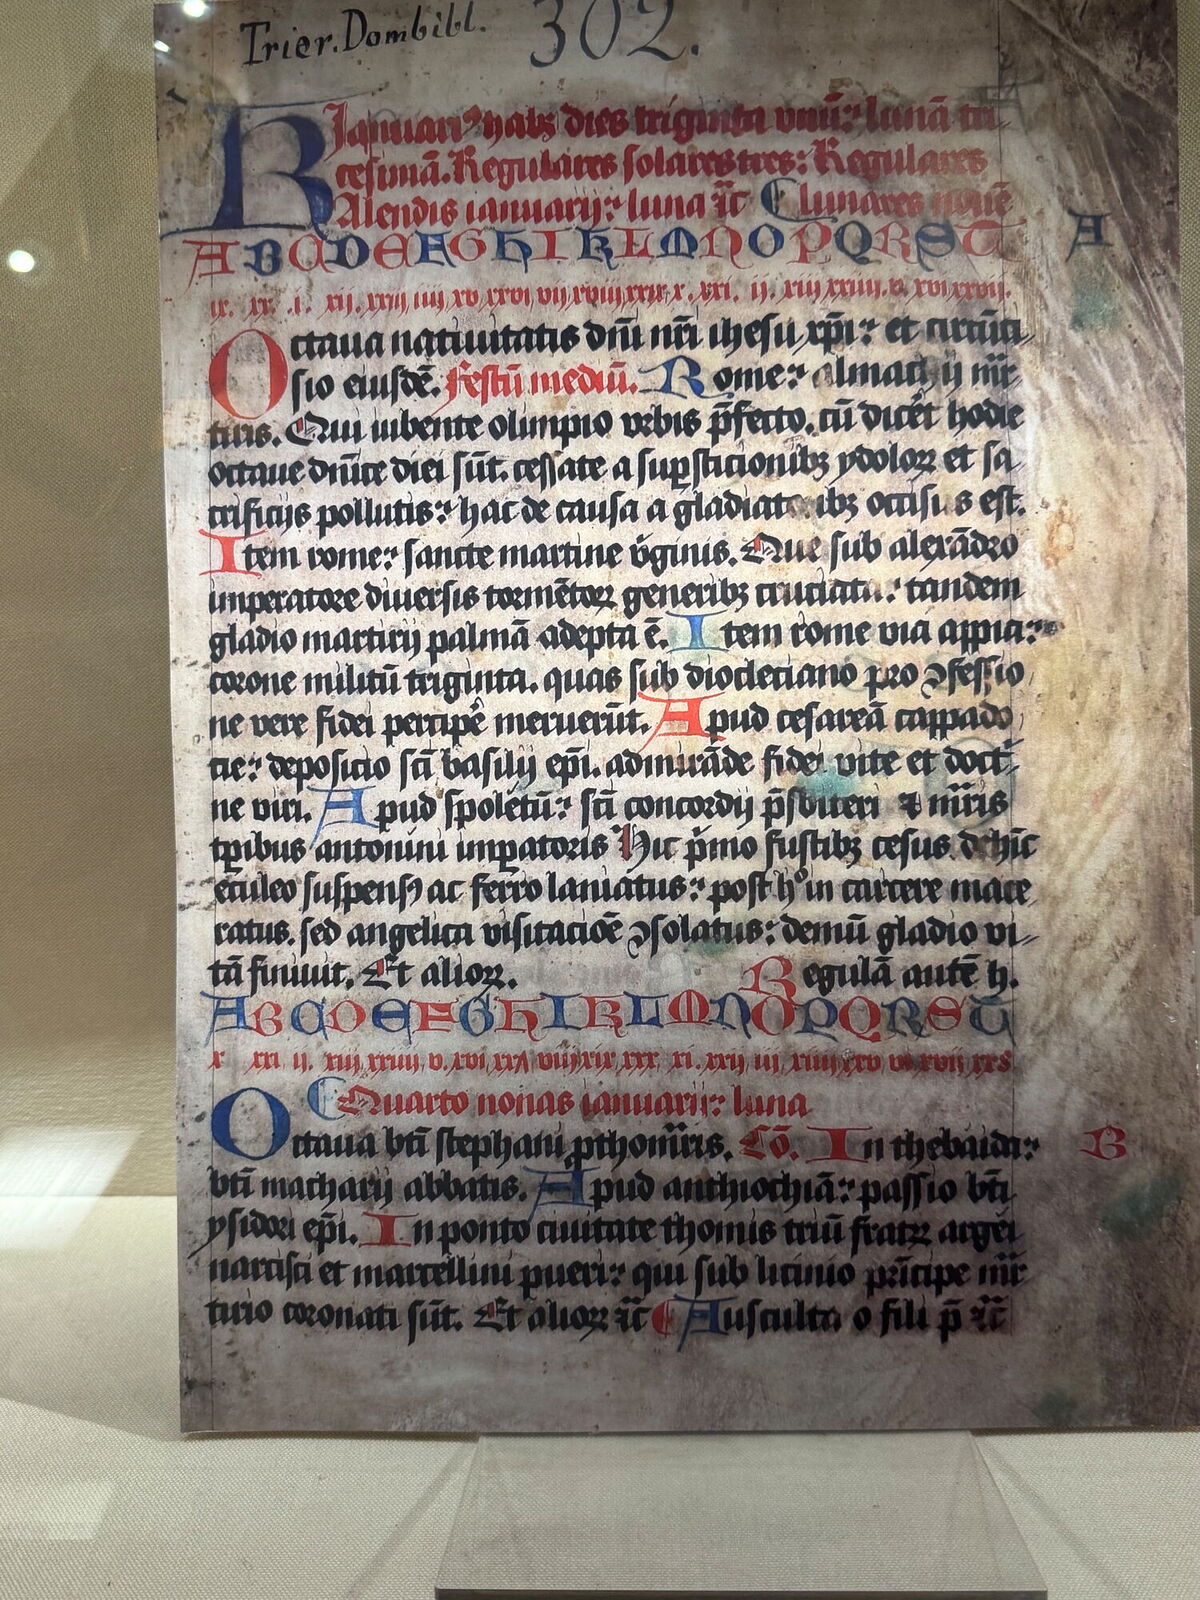 Trier. Dombibl. 302.
Januari⁹ habꝫ dies triginta vnū: lunā tri
cesimā. Regulares solares tres: Regulares
KAlendis ianuarij: luna ⁊c̄ C lunares nouē
A B C D E F G H I K L M N O P Q R S T A
ix. xx. i. xij. xxiij iiij xv xxvi vij xviij xxix x. xxi. ij. xiij xxiiij. v. xvi xxvij.
Octaua natiuitatis dn̄i nr̄i ihesu xp̄i: et circūci//
sio eiusdē. Festū mediū. Rome: almachij mr̄//
tiris. Qui iubente olimpio vrbis p̄fecto. cū dicēt hodie
octaue dn̄ice diei sūt. cessate a suꝑsticionibꝫ ydoloꝝ et sa//
crificijs pollutis: hac de causa a gladiatoribꝫ occisus est.
Item rome: sancte martine v̄ginis. Que sub alexādro
imperatore diuersis tormētoꝝ generibꝫ cruciata: tandem
gladio martirij palmā adepta ē. Item rome via appia:
corone militū triginta. quas sub diocletiano pro ꝯfessio
ne vere fidei percipē meruerūt. Apud cesareā cappado
cie: deposicio sc̄i basilij ep̄i. admirāde fidei vite et doctͥ//
ne viri. Apud spoletū: sc̄i concordij p̄sbiteri ⁊ mr̄is
tꝑibus antonini imꝑatoris Hic p̄mo fustibꝫ cesus. dehīc
eculeo suspensꝰ ac ferro laniatus: post hº in carcere mace
ratus. sed angelica visitacioē ꝯsolatus: demū gladio vi//
tā finiuit. Et alioꝝ. Regulā autē h.
A B C D E F G H I K L M N O P Q R S T
x xxi ij. xiij xxiiij. v. xvi xxvij viij xix xxx xi. xxij iij xiiij xxv vi xvij
C Quarto nonas ianuarij: luna
Octaua bt̄i stephani ꝓthomr̄is. Cō. In thebaida: B
bt̄i macharij abbatis. Apud anthiochiā: passio bt̄i
ysidori ep̄i. In ponto ciuitate thomis triū fratꝝ argei
narcisci et marcellini pueri: qui sub licinio prīcipe mr̄
tirio coronati sūt. Et alioꝝ ⁊c̄ C Ausculta o fili p̄ ⁊c̄